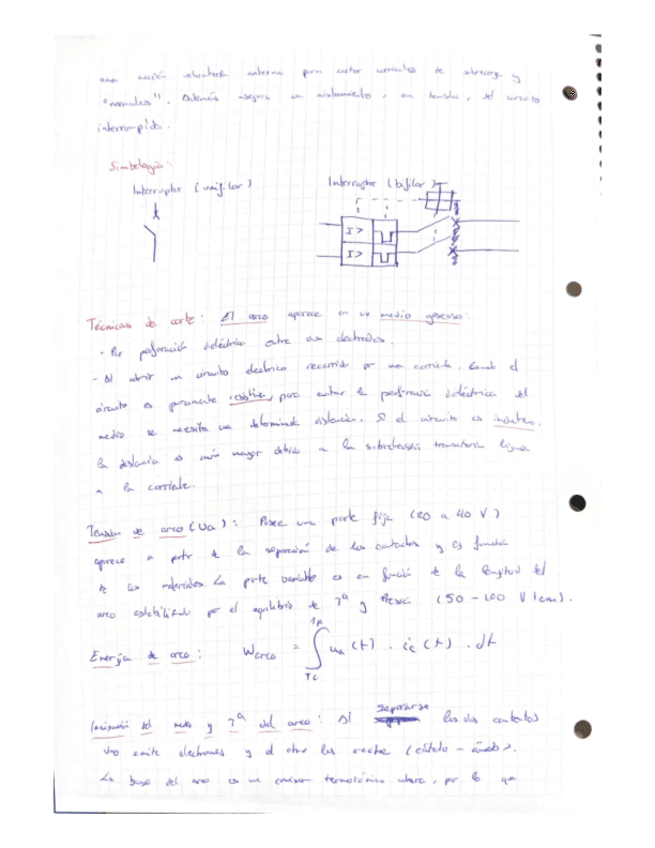 una acción voluntaria externa para cortar corrientes de sobrecarga y
"normales". Además asegura un aislamiento, en tensión, del circuito
interrumpido.
Simbología:
Interruptor (unifilar)
Interruptor (bifilar)
I >
I >
Técnicas de corte: El arco aparece en un medio gaseoso:
- Por perforación dieléctrica entre dos electrodos.
- Al abrir un circuito electrico recorrido por una corriente. Cuando el
circuito es puramente resistivo, para evitar la perforación dieléctrica del
medio se necesita una determinada distancia. Si el circuito es inductivo,
la distancia es aún mayor debido a la sobretensión transitoria
a la corriente.
Tensión de arco (Ua): Posee una parte fija (20 a 40 V)
aparece a partir de la separación de los contactos y es función
de los materiales. La parte variable es en función de la longitud del
arco estabilizado por el equilibrio de Tª y Presión (50 - 100 V/cm).
Energía de arco: Warco = ∫ ua (t) . ic (t) . dt
Ionización del medio y Tª del arco: Al separarse los dos contactos
uno emite electrones y el otro los recibe (cátodo - ánodo).
La base del arco es un emisor termoiónico, por lo que